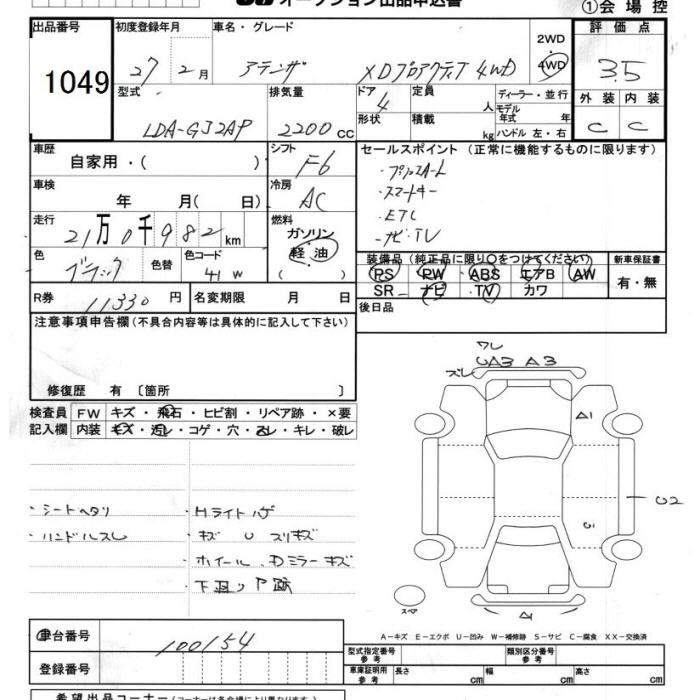 オークション出品申込書
①会場控
出品番号
1049
初度登録年月
27年2月
車名・グレード
アテンザ XDプロアクティブ4WD
2WD
4WD
評価点
3.5
型式
LDA-GJ2AP
排気量
2200cc
ドア
4
定員
人
ディーラー・並行
モデル年式 年
形状
積載
kg
ハンドル 左・右
外装
内装
C
C
車歴
自家用・( )
シフト
F6
セールスポイント(正常に機能するものに限ります)
・プッシュスタート
・スマートキー
・ETC
・ナビ・TV
車検
年 月( 日)
冷房
AC
走行
21万0千982km
燃料
ガソリン
軽油
( )
色
ブラック
色替
色コード
41W
装備品(純正品に限り○をつけてください)
PS PW ABS エアB AW
SR ナビ TV カワ
新車保証書
有・無
R券
11330円
名変期限 月 日
後日品
注意事項申告欄(不具合内容等は具体的に記入して下さい)
修復歴 有 〔箇所 〕
検査員
記入欄
FW キズ・飛石・ヒビ割・リペア跡・×要
内装 キズ・汚レ・コゲ・穴・スレ・キレ・破レ
・シートヘタリ
・ハンドルスレ
・Hライトハゲ
・キズ U スリキズ
・ホイール、Dミラーキズ
・下廻りP跡
ワレ
ズレ
UA3 A3
A1
U2
C
A1
スペア
A−キズ E−エクボ U−凹み W−補修跡 S−サビ C−腐食 XX−交換済
車台番号
100154
登録番号
型式指定番号
参考
類別区分番号
参考
車庫証明用
参考
長さ cm
幅 cm
高さ cm
希望出品コーナー(コーナーは各会場により異なります)